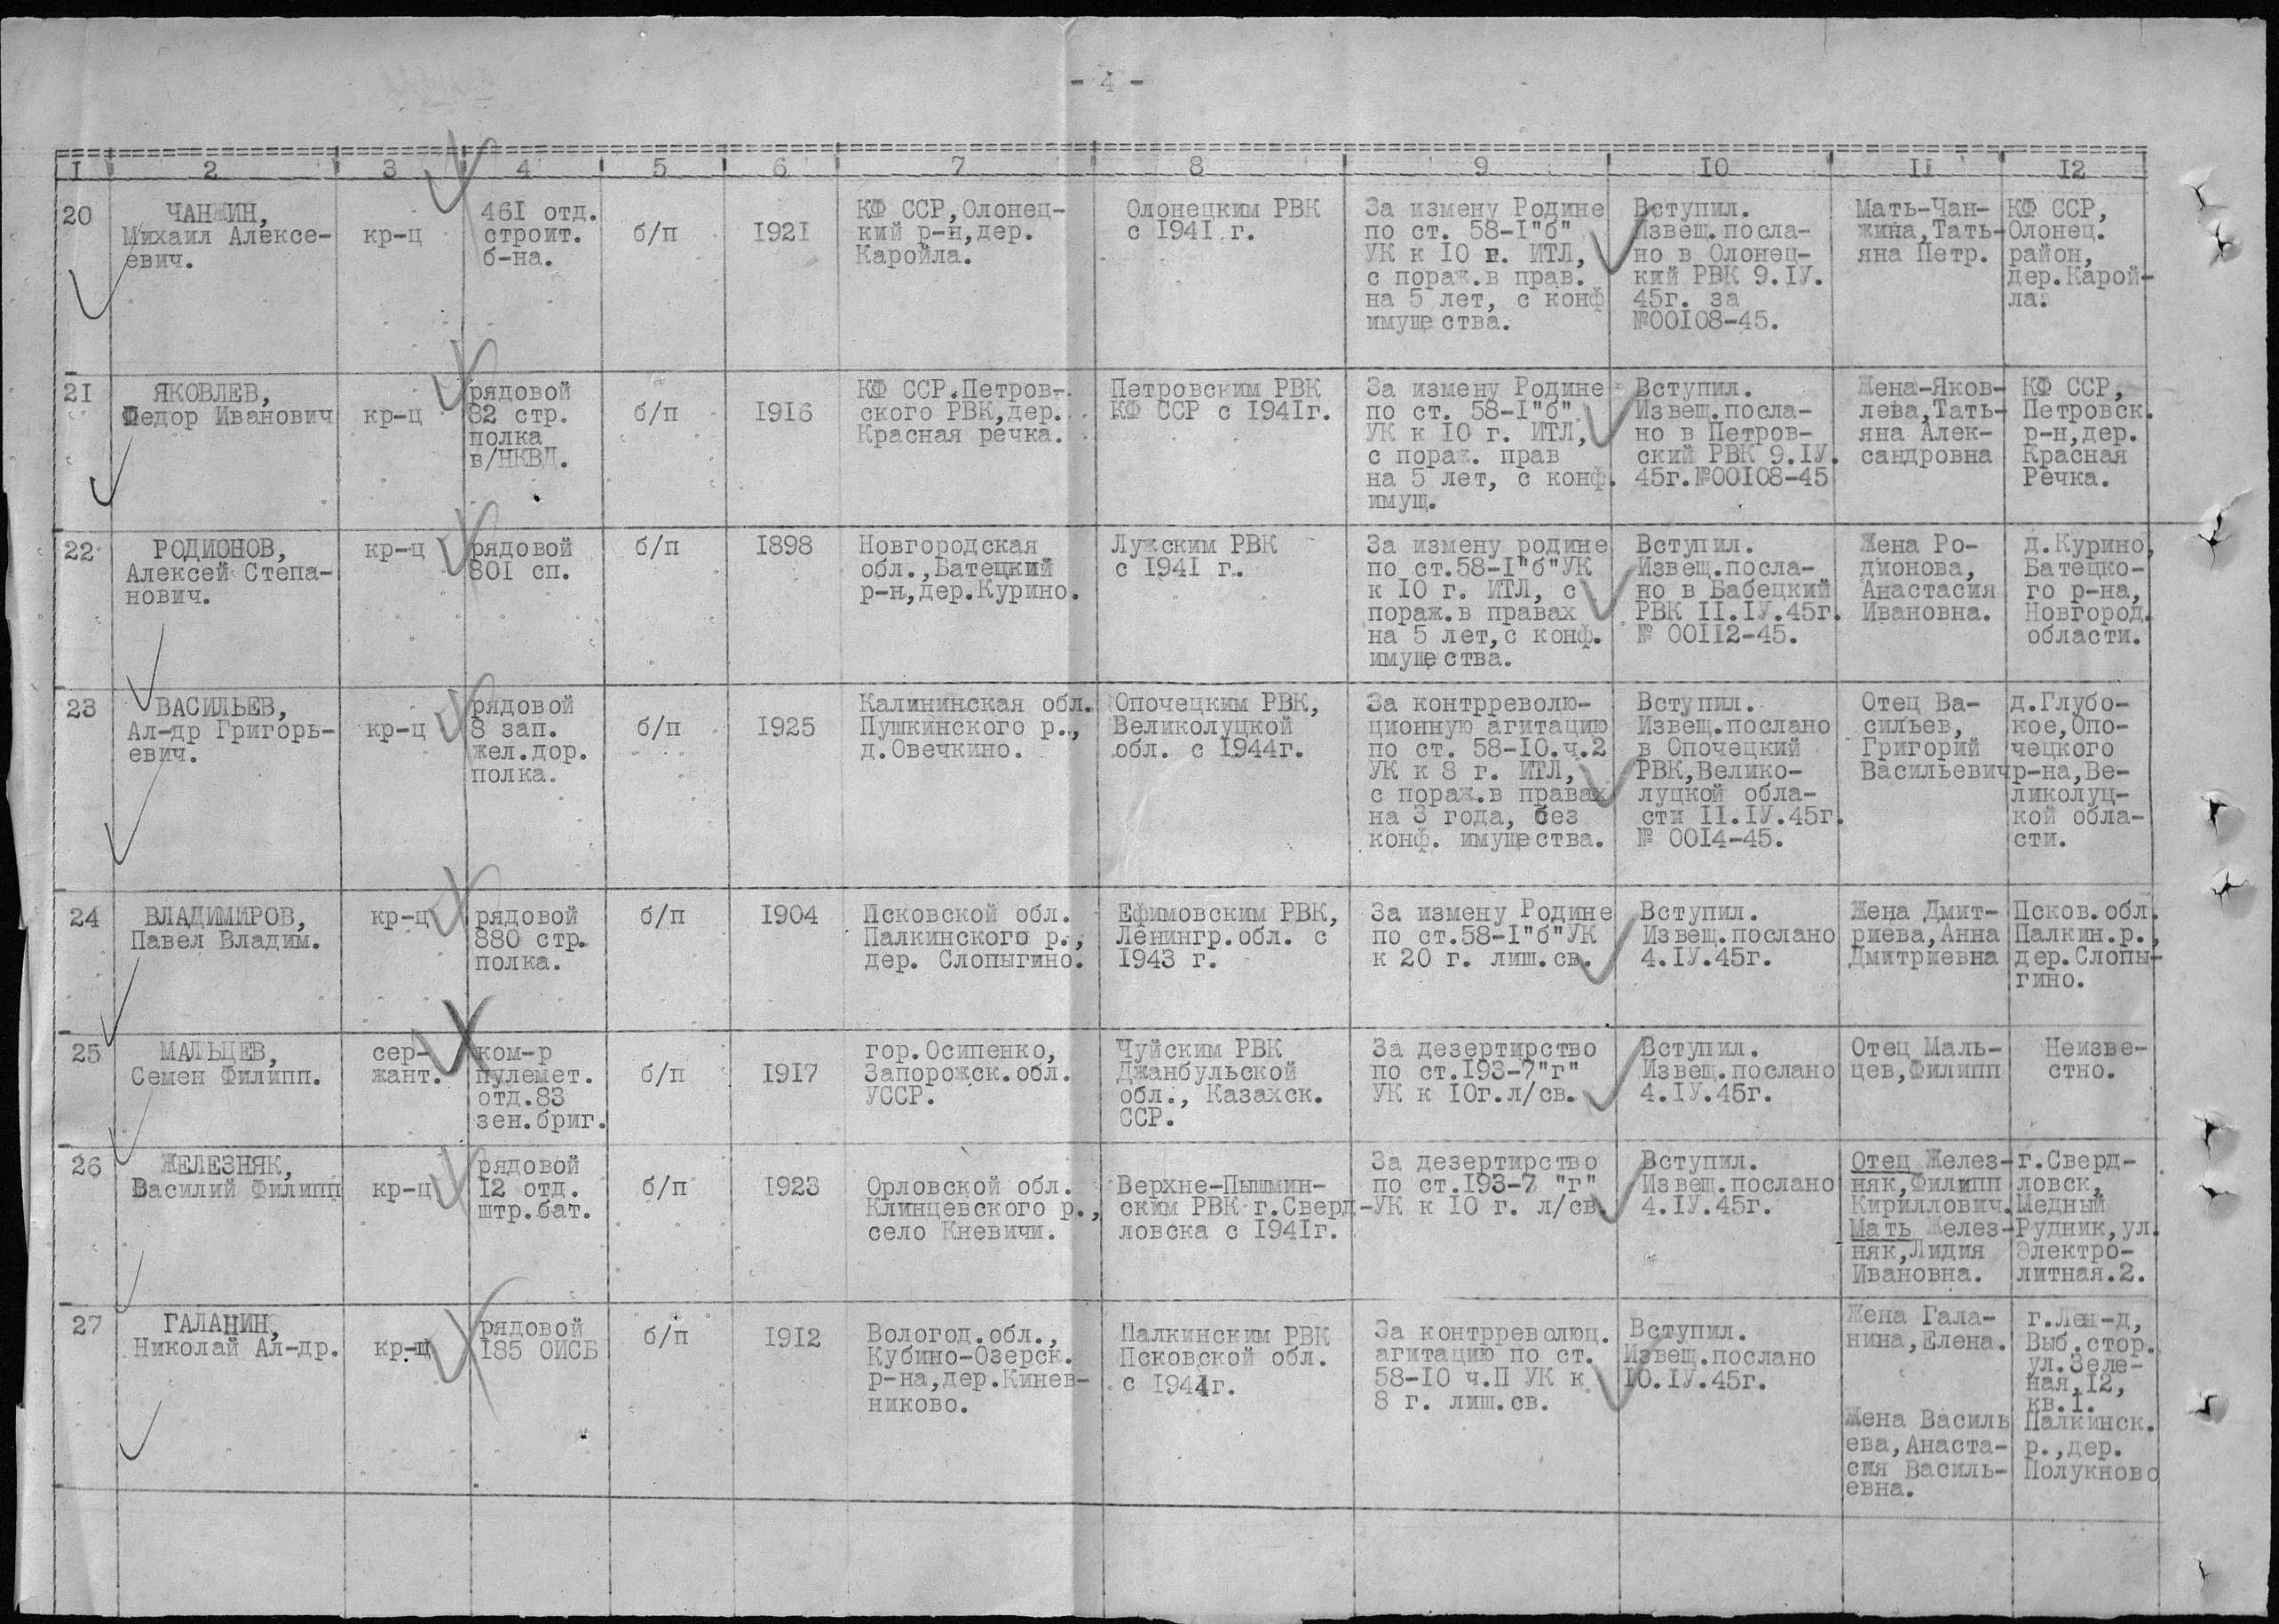 - 4 -
1 2 3 4 5 6 7 8 9 10 11 12
20
ЧАНЖИН,
Михаил Алексе-
евич.
кр-ц
461 отд.
строит.
б-на.
б/п
1921
КФ ССР,Олонец-
кий р-н,дер.
Каройла.
Олонецким РВК
с 1941 г.
За измену Родине
по ст. 58-1"б"
УК к 10 г. ИТЛ,
с пораж.в прав.
на 5 лет, с конф
имущества.
Вступил.
Извещ.посла-
но в Олонец-
кий РВК 9.IУ.
45г. за
№00108-45.
Мать-Чан-
жина,Тать-
яна Петр.
КФ ССР,
Олонец.
район,
дер.Карой-
ла.
21
ЯКОВЛЕВ,
Федор Иванович
кр-ц
рядовой
82 стр.
полка
в/НКВД.
б/п
1916
КФ ССР.Петров-
ского РВК,дер.
Красная речка.
Петровским РВК
КФ ССР с 1941г.
За измену Родине
по ст. 58-1"б"
УК к 10 г. ИТЛ,
с пораж. прав
на 5 лет, с конф.
имущ.
Вступил.
Извещ.посла-
но в Петров-
ский РВК 9.IУ.
45г.№00108-45
Жена-Яков-
лева,Тать-
яна Алек-
сандровна
КФ ССР,
Петровск.
р-н,дер.
Красная
Речка.
22
РОДИОНОВ,
Алексей Степа-
нович.
кр-ц
рядовой
801 сп.
б/п
1898
Новгородская
обл.,Батецкий
р-н,дер.Курино.
Лужским РВК
с 1941 г.
За измену родине
по ст.58-1"б"УК
к 10 г. ИТЛ, с
пораж.в правах
на 5 лет,с конф.
имущества.
Вступил.
Извещ.посла-
но в Бабецкий
РВК II.IУ.45г.
№ 00112-45.
Жена Ро-
дионова,
Анастасия
Ивановна.
д.Курино,
Батецко-
го р-на,
Новгород.
области.
23
ВАСИЛЬЕВ,
Ал-др Григорь-
евич.
кр-ц
рядовой
8 зап.
жел.дор.
полка.
б/п
1925
Калининская обл.
Пушкинского р.,
д.Овечкино.
Опочецким РВК,
Великолуцкой
обл. с 1944г.
За контрреволю-
ционную агитацию
по ст. 58-10.ч.2
УК к 8 г. ИТЛ,
с пораж.в правах
на 3 года, без
конф. имущества.
Вступил.
Извещ.послано
в Опочецкий
РВК,Велико-
луцкой обла-
сти II.IУ.45г.
№ 0014-45.
Отец Ва-
сильев,
Григорий
Васильевич
д.Глубо-
кое,Опо-
чецкого
р-на,Ве-
ликолуц-
кой обла-
сти.
24
ВЛАДИМИРОВ,
Павел Владим.
кр-ц
рядовой
880 стр.
полка.
б/п
1904
Псковской обл.
Палкинского р.,
дер. Слопыгино.
Ефимовским РВК,
Ленингр.обл. с
1943 г.
За измену Родине
по ст.58-1"б"УК
к 20 г. лиш.св.
Вступил.
Извещ.послано
4.IУ.45г.
Жена Дмит-
риева,Анна
Дмитриевна
Псков.обл.
Палкин.р.,
дер.Слопы-
гино.
25
МАЛЬЦЕВ,
Семен Филипп.
сер-
жант.
ком-р
пулемет.
отд.83
зен.бриг.
б/п
1917
гор.Осипенко,
Запорожск.обл.
УССР.
Чуйским РВК
Джанбульской
обл., Казахск.
ССР.
За дезертирство
по ст.193-7"г"
УК к 10г.л/св.
Вступил.
Извещ.послано
4.IУ.45г.
Отец Маль-
цев,Филипп
Неизве-
стно.
26
ЖЕЛЕЗНЯК,
Василий Филипп
кр-ц
рядовой
12 отд.
штр.бат.
б/п
1923
Орловской обл.
Клинцевского р.,
село Кневичи.
Верхне-Пышмин-
ским РВК г.Сверд-
ловска с 1941г.
За дезертирство
по ст.193-7 "г"
УК к 10 г. л/св.
Вступил.
Извещ.послано
4.IУ.45г.
Отец Желез-
няк,Филипп
Кириллович.
Мать Желез-
няк,Лидия
Ивановна.
г.Сверд-
ловск,
Медный
Рудник,ул.
Электро-
литная.2.
27
ГАЛАНИН,
Николай Ал-др.
кр-ц
рядовой
185 ОИСБ
б/п
1912
Вологод.обл.,
Кубино-Озерск.
р-на,дер.Кинев-
никово.
Палкинским РВК
Псковской обл.
с 1944г.
За контрреволюц.
агитацию по ст.
58-10 ч.П УК к
8 г. лиш.св.
Вступил.
Извещ.послано
10.IУ.45г.
Жена Гала-
нина,Елена.
Жена Василь
ева,Анаста-
сия Василь-
евна.
г.Лен-д,
Выб.стор.
ул.Зеле-
ная,12,
кв.1.
Палкинск.
р.,дер.
Полукново